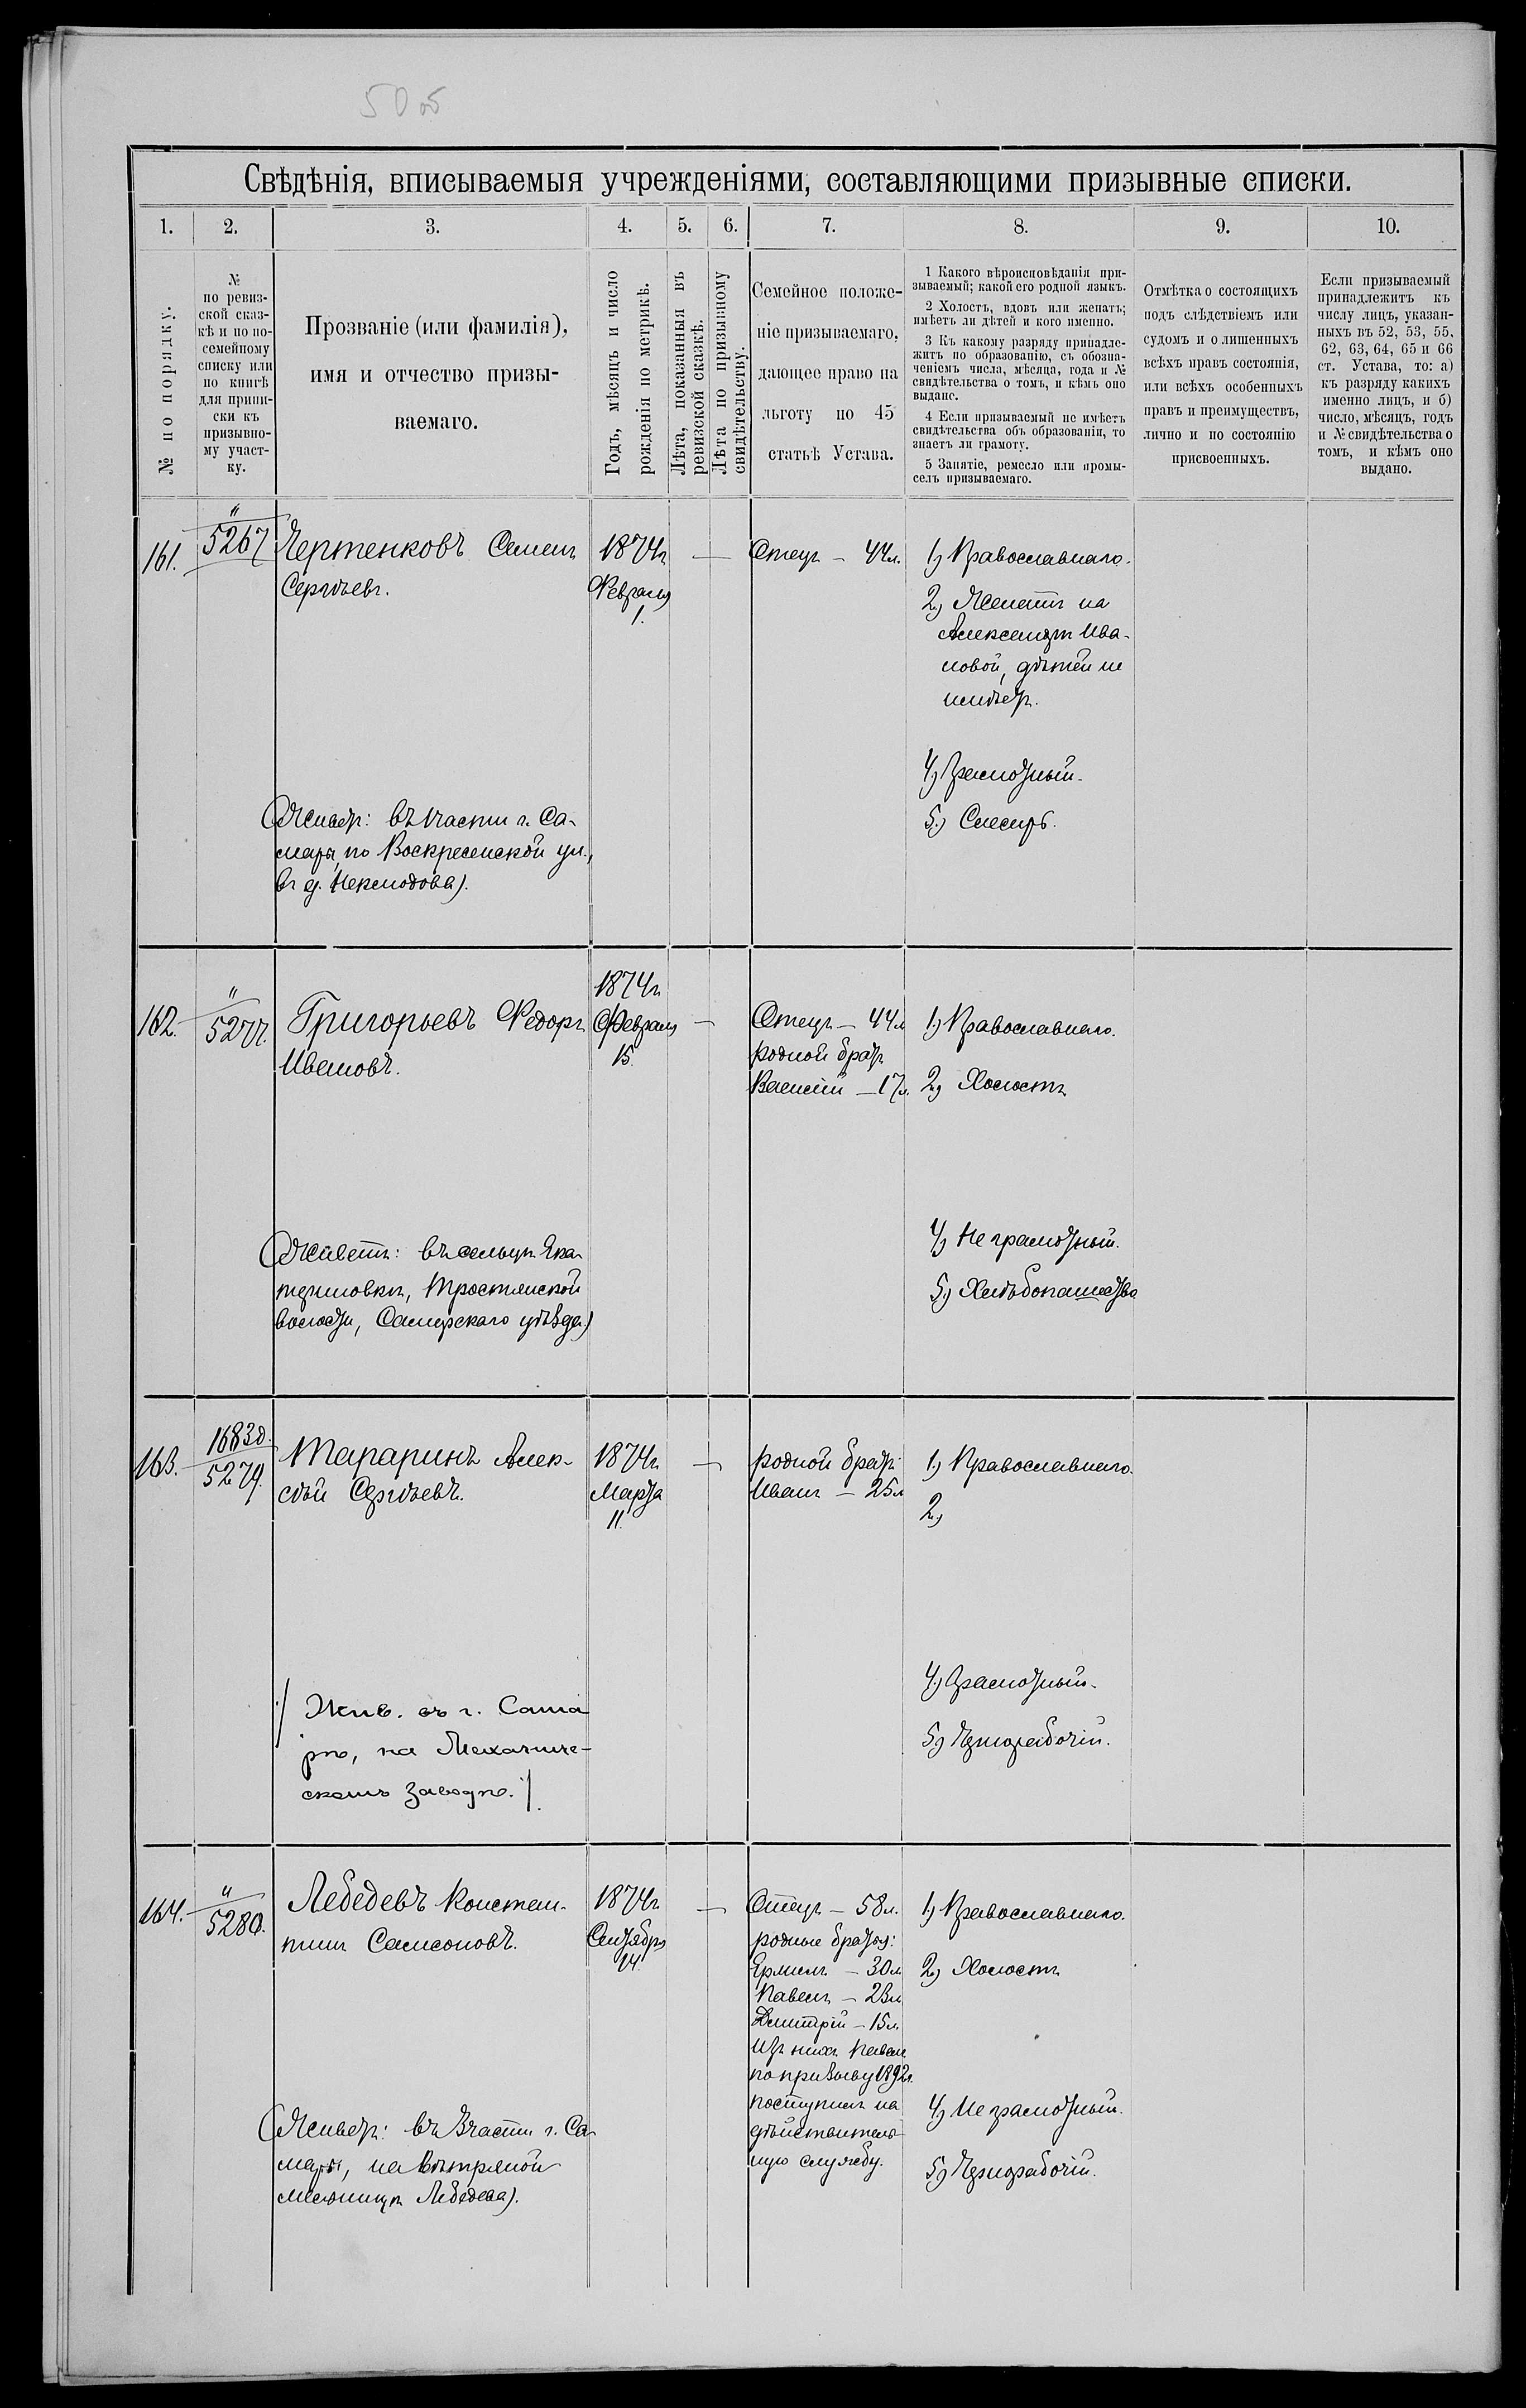 50 об
Свѣдѣнія, вписываемыя учрежденіями, составляющими призывные списки.
1. 2. 3. 4. 5. 6. 7. 8. 9. 10.
№ по порядку.
№
по ревиз-
ской сказ-
кѣ и по по-
семейному
списку или
по книгѣ
для припи-
ски къ
призывно-
му участ-
ку.
Прозваніе (или фамилія),
имя и отчество призы-
ваемаго.
Годъ, мѣсяцъ и число
рожденія по метрикѣ.
Лѣта, показанныя въ
ревизской сказкѣ.
Лѣта по призывному
свидѣтельству.
Семейное положе-
ніе призываемаго,
дающее право на
льготу по 45
статьѣ Устава.
1 Какого вѣроисповѣданія при-
зываемый; какой его родной языкъ.
2 Холостъ, вдовъ или женатъ;
имѣетъ ли дѣтей и кого именно.
3 Къ какому разряду принадле-
житъ по образованію, съ обозна-
ченіемъ числа, мѣсяца, года и №
свидѣтельства о томъ, и кѣмъ оно
выдано.
4 Если призываемый не имѣетъ
свидѣтельства объ образованіи, то
знаетъ ли грамоту.
5 Занятіе, ремесло или промы-
селъ призываемаго.
Отмѣтка о состоящихъ
подъ слѣдствіемъ или
судомъ и о лишенныхъ
всѣхъ правъ состоянія,
или всѣхъ особенныхъ
правъ и преимуществъ,
лично и по состоянію
присвоенныхъ.
Если призываемый
принадлежитъ къ
числу лицъ, указан-
ныхъ въ 52, 53, 55,
62, 63, 64, 65 и 66
ст. Устава, то: а)
къ разряду какихъ
именно лицъ, и б)
число, мѣсяцъ, годъ
и № свидѣтельства о
томъ, и кѣмъ оно
выдано.
161.
"
5267
Чертенковъ Семенъ
Сергѣевъ.
1874г.
Февраля
1.
—
Отецъ — 44л.
1) Православнаго.
2) Женатъ на
Александрѣ Ива-
новой, дѣтей не
имѣетъ.
4) Грамотный.
5) Слесарь.
(Живетъ: въ 1 части г. Са-
мары, по Воскресенской ул.,
въ д. )
162.
"
5277.
Григорьевъ Федоръ
Ивановъ.
1874г.
Февраля
15.
—
Отецъ — 44л.
родной братъ
Василій — 17л.
1) Православнаго.
2) Холостъ
4) Не грамотный.
5) Хлѣбопашество
(Живетъ: въ сельцѣ Ека-
териновкѣ, Тростянской
волости, Самарскаго уѣзда)
163.
1683д.
5279.
Тараринъ Алек-
сѣй Сергѣевъ.
1874г.
Марта
11.
—
родной братъ
Иванъ — 25л.
1) Православнаго.
2)
4) Грамотный.
5) Чернорабочій.
/ Жив. въ г. Сама
рѣ, на Механиче-
скомъ заводѣ. /
164.
"
5280.
Лебедевъ Констан-
тинъ Самсоновъ.
1874г.
Сентября
14.
—
Отецъ — 58л.
родные братья:
Ермилъ — 30л.
Павелъ — 23л.
Дмитрій — 15л.
Изъ нихъ Павелъ
по призыву 1892г.
поступилъ на
дѣйствитель-
ную службу.
1) Православнаго.
2) Холостъ
4) Не грамотный.
5) Чернорабочій.
(Живетъ: въ 3 части г. Са-
мары, на вѣтряной
мельницѣ Лебедева).